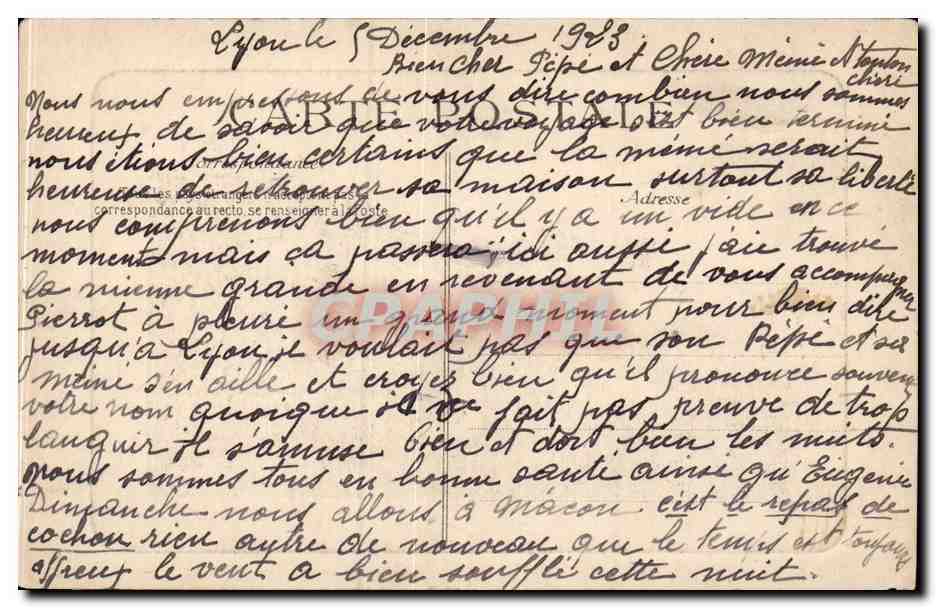 Lyon le 5 Décembre 1923
Bien Cher Pépé et Chère Mémé et tonton
cheri
Nous nous empressons de vous dire combien nous sommes
CARTE POSTALE
heureux de savoir que votre voyage s'est bien terminé
nous étions bien certains que la mémé serait
Correspondance
heureuse de retrouver sa maison surtout sa liberté
Tous les pays étrangers n'acceptent pas la
correspondance au recto, se renseigner à la Poste
Adresse
nous comprenons bien qu'il y a un vide en ce
moment mais ça passera, ici aussi j'aie trouvé
la mienne grande en revenant de vous accompagner
CPAPHIL
Pierrot à pleuré un grand moment pour bien dire
jusqu'à Lyon, je voulait pas que son Pépé et sa
mémé s'en aille et croyez bien qu'il prononce souvent
votre nom quoique il ne fait pas preuve de trop
languir il s'amuse bien et dort bien les nuits.
nous sommes tous en bonne santé ainsi qu'Eugénie
Dimanche nous allons à Mâcon c'est le repas de
cochon rien autre de nouveau que le temps est toujours
affreux le vent a bien soufflé cette nuit.